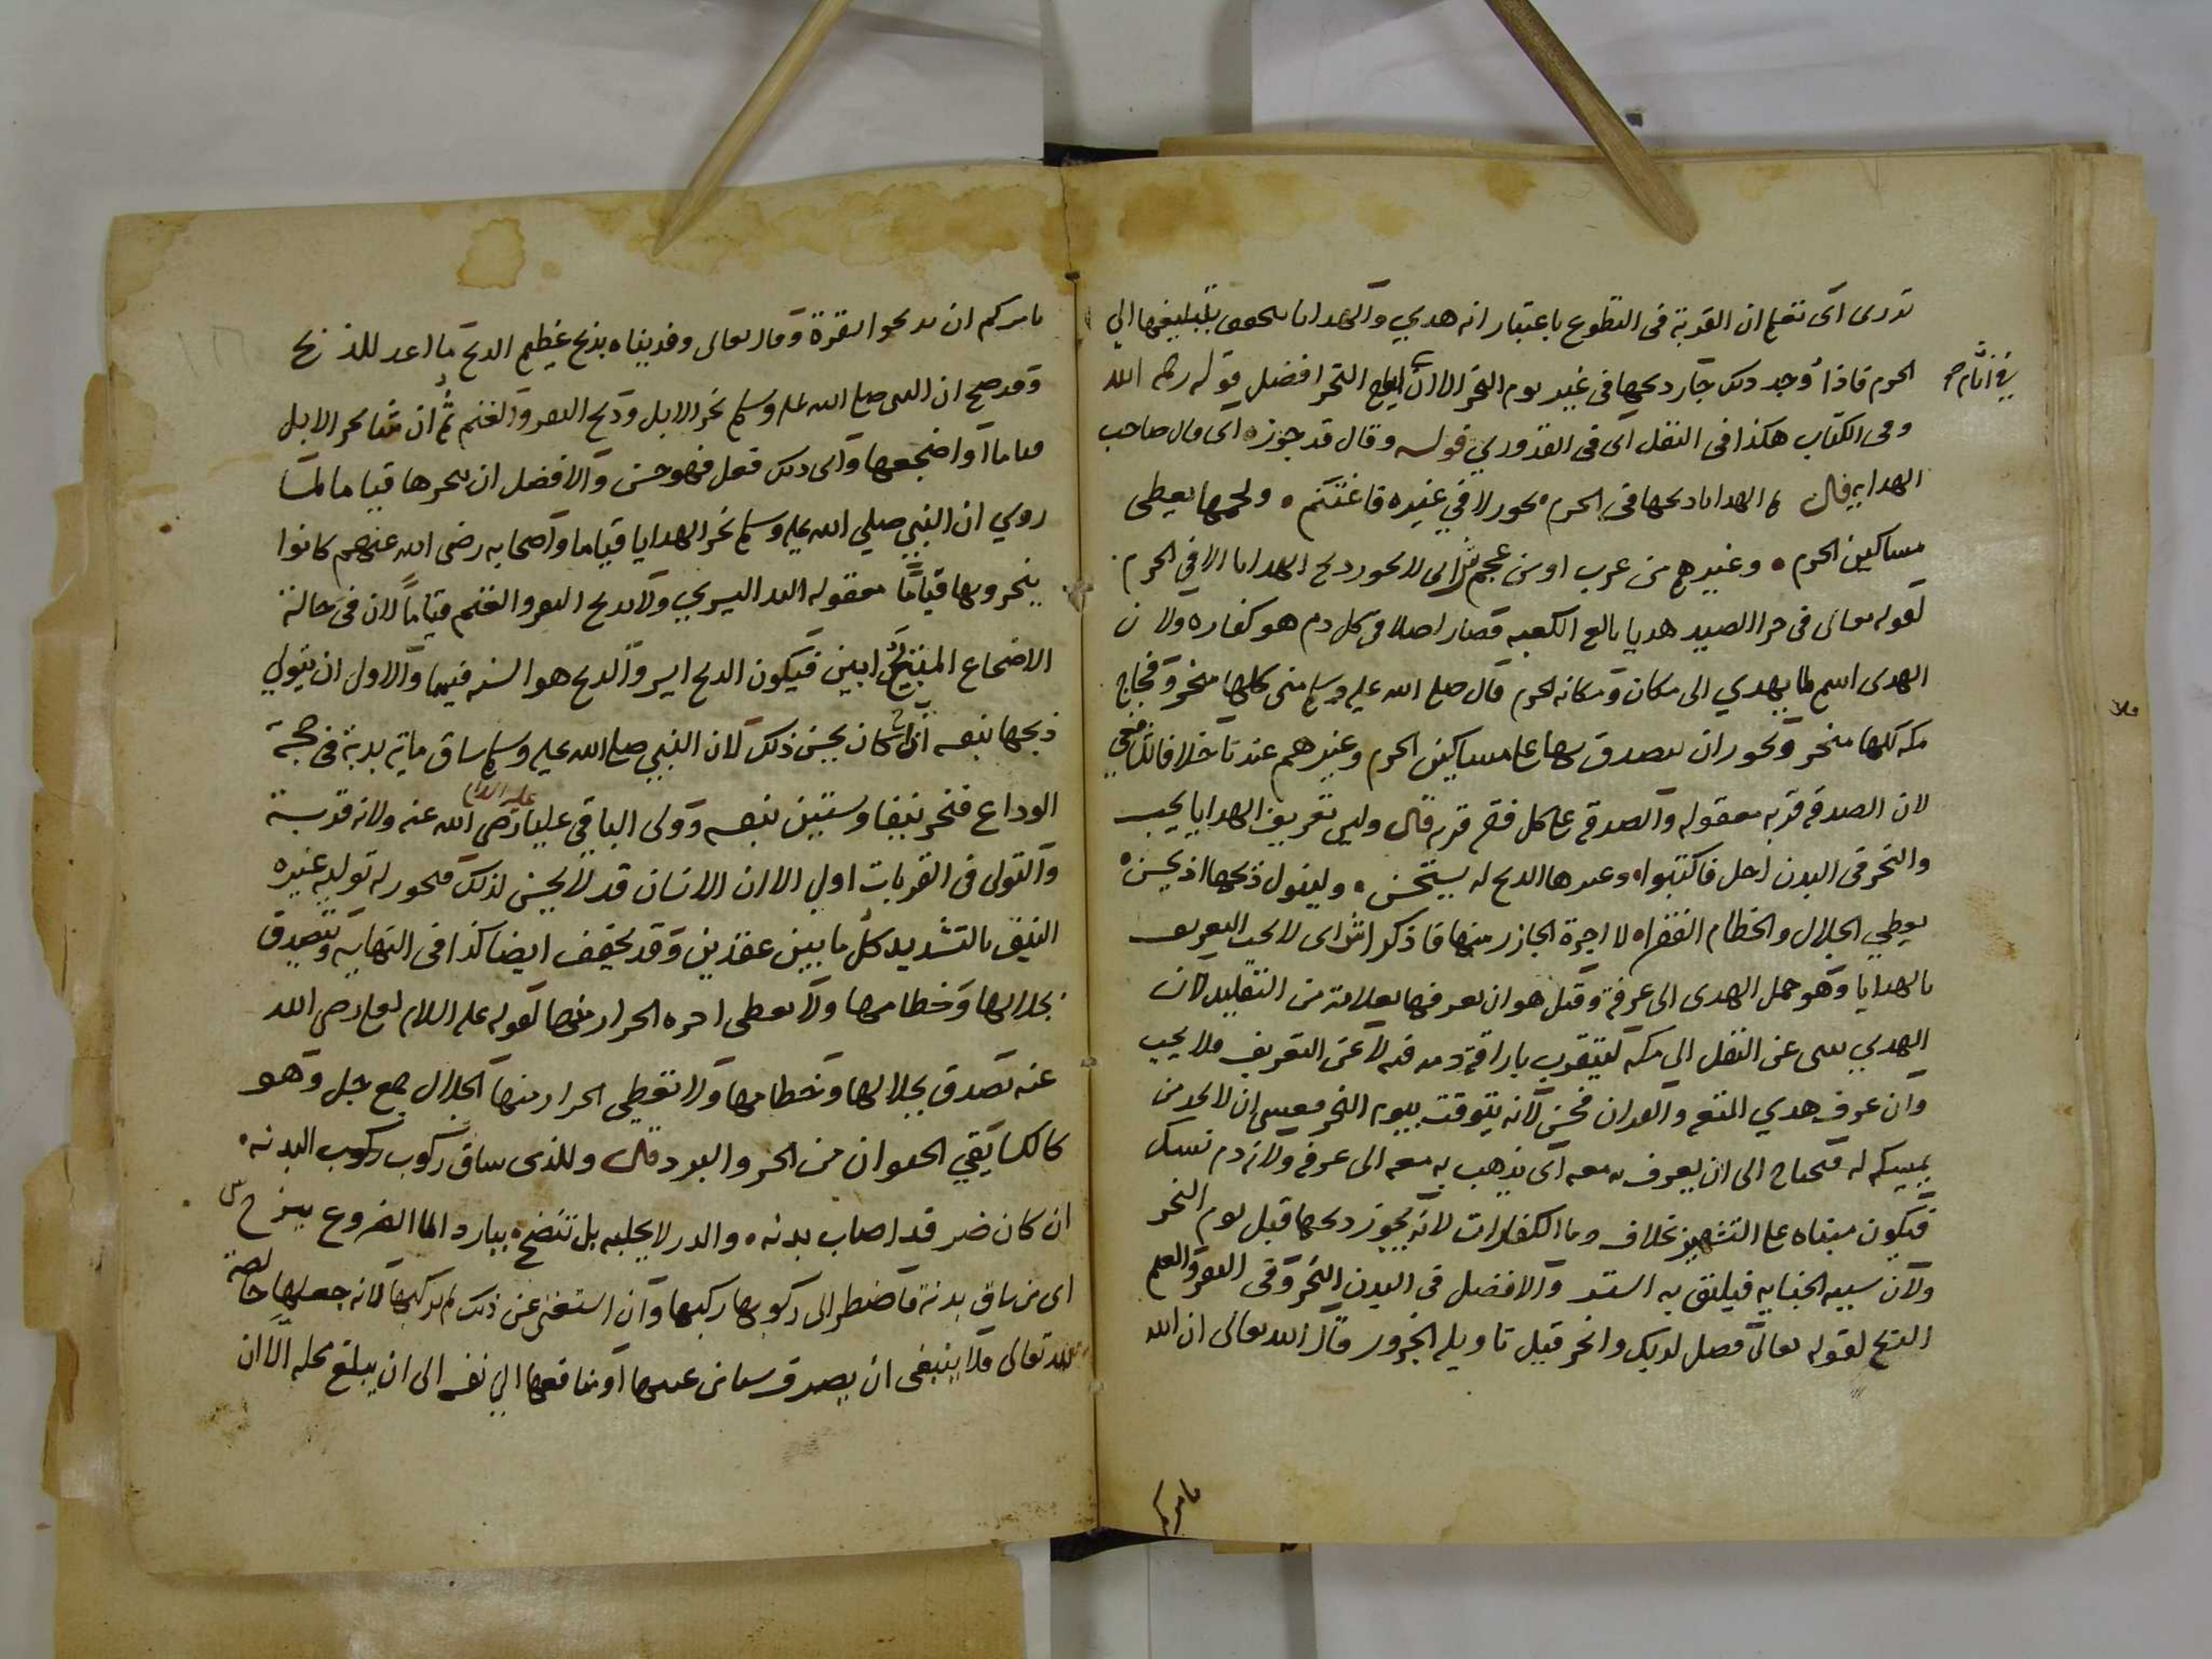 تدرى اى تعلم ان القربة فى التطوع باعتبار انه هدي والهدايا تتحقق بتبليغها الي
الحرم فاذا وجد ذلك جاز ذبحها فى غير يوم النحر الا ان ايام النحر افضل قوله رحمه الله
فى ايام صح
وفى الكتاب هكذا فى النفل اى فى القدوري قوله وقال قد جوزه اى قال صاحب
الهدايه قال الهدايا ذبحها فى الحرم يجوز لا في غيره فاغتنم ولحمها يعطى
مساكين الحرم وغيرهم من عرب او من عجم ش اى لا يجوز ذبح الهدايا الا في الحرم
لقوله تعالى فى جزا الصيد هديا بالغ الكعبه فصار اصلا فى كل دم هو كفاره ولان
الهدى اسم لما يهدي الى مكان ومكانه الحرم قال صلى الله عليه وسلم منى كلها منحر وفجاج
مكه كلها منحر ويجوز ان يتصدق بها على مساكين الحرم وغيرهم عندنا خلافا للشافعي
لان الصدقه قربه معقوله والصدقه على كل فقير قربه قال وليس تعريف الهدايا يجب
والنحر فى البدن احل فاكتبوا وغيرها الذبح له يستحسن وليتول ذبحها اذ يحسن
يعطي الجلال والخطام الفقراه لا اجرة الجازر منها فاذكرا ش اى لا يجب التعريف
بالهدايا وهو حمل الهدى الى عرفة وقيل هو ان يعرفها بعلامة من التقليد لان
الهدي ينبى عن النقل الى مكه ليتقرب باراقة دمه فيه لا عن التعريف فلا يجب
وان عرف هدي المتعه والقران فحسن لانه يتوقت بيوم النحر فعسى ان لا يجد من
يمسكه له فيحتاج الى ان يعرف به معه اى يذهب به معه الى عرفه ولانه دم نسك
فيكون مبناه على التشهير بخلاف دما الكفارات لانه يجوز ذبحها قبل يوم النحر
ولان سببه الجنايه فيليق به الستر والافضل فى البدن النحر وفى البقر والغنم
الذبح لقوله تعالى فصل لربك وانحر قيل تاويله الجزور وقال الله تعالى ان الله
يامركم
يامركم ان تذبحوا بقرة وقال تعالى وفديناه بذبح عظيم الذبح ما اعد للذبح
وقد صح ان النبى صلى الله عليه وسلم نحر الابل وذبح البقر والغنم ثم ان شا نحر الابل
قياما او اضجعها واى ذلك فعل فهو حسن والافضل ان ينحرها قياما لما
روي ان النبي صلى الله عليه وسلم نحر الهدايا قياما واصحابه رضى الله عنهم كانوا
ينحرونها قياما معقوله اليد اليسري ولا يذبح البقر والغنم قياما لان فى حالة
الاضجاع المذبح ابين فيكون الذبح ايسر والذبح هو السنه فيهما والاولى ان يتولي
ذبحها بنفسه ان كان يحسن ذلك لان النبي صلى الله عليه وسلم ساق ماية بدنة فى حجة
الوداع فنحر نيفا وستين بنفسه وولى الباقي عليا رضى الله عنه ولانه قربة
والتولى فى القربات اولي الا ان الانسان قد لا يحسن لذلك فيجوز له توليه غيره
النيف بالتشديد كل ما بين عقدين وقد يخفف ايضا كذا فى النهايه ويتصدق
بجلالها وخطامها ولا يعطى اجره الجزار منها لقوله عليه السلام لعلى رضى الله
عنه تصدق بجلالها وخطامها ولا تعطي الجزار منها الجلال جمع جل وهو
كالكسا يقي الحيوان من الحر والبرد قال وللذى ساق ركوب ركوب البدنه
ان كان ضر قد اصاب بدنه والدر لا يحلبه بل تنضح ببارد الما الضروع ينزح ش
اى من ساق بدنة فاضطر الى ركوبها ركبها وان استغنى عن ذلك لم يركبها لانه جعلها خالصة
لله تعالى فلا ينبغى ان يصرف شيا من عينها او منافعها الي نفسه الى ان يبلغ محله الا ان